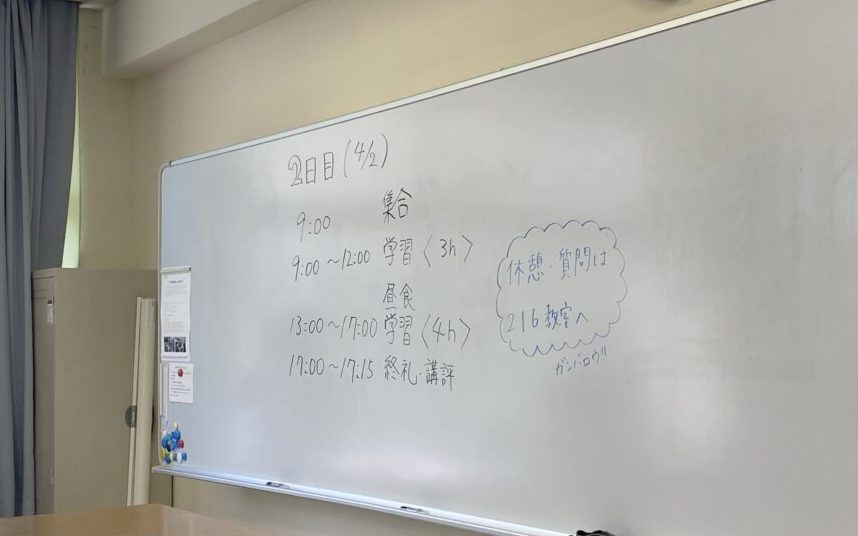 2日目(4/2)
9:00 集合
9:00～12:00 学習〈3h〉
昼食
13:00～17:00 学習〈4h〉
17:00～17:15 終礼・講評
休憩・質問は
216教室へ
ガンバロウ!!